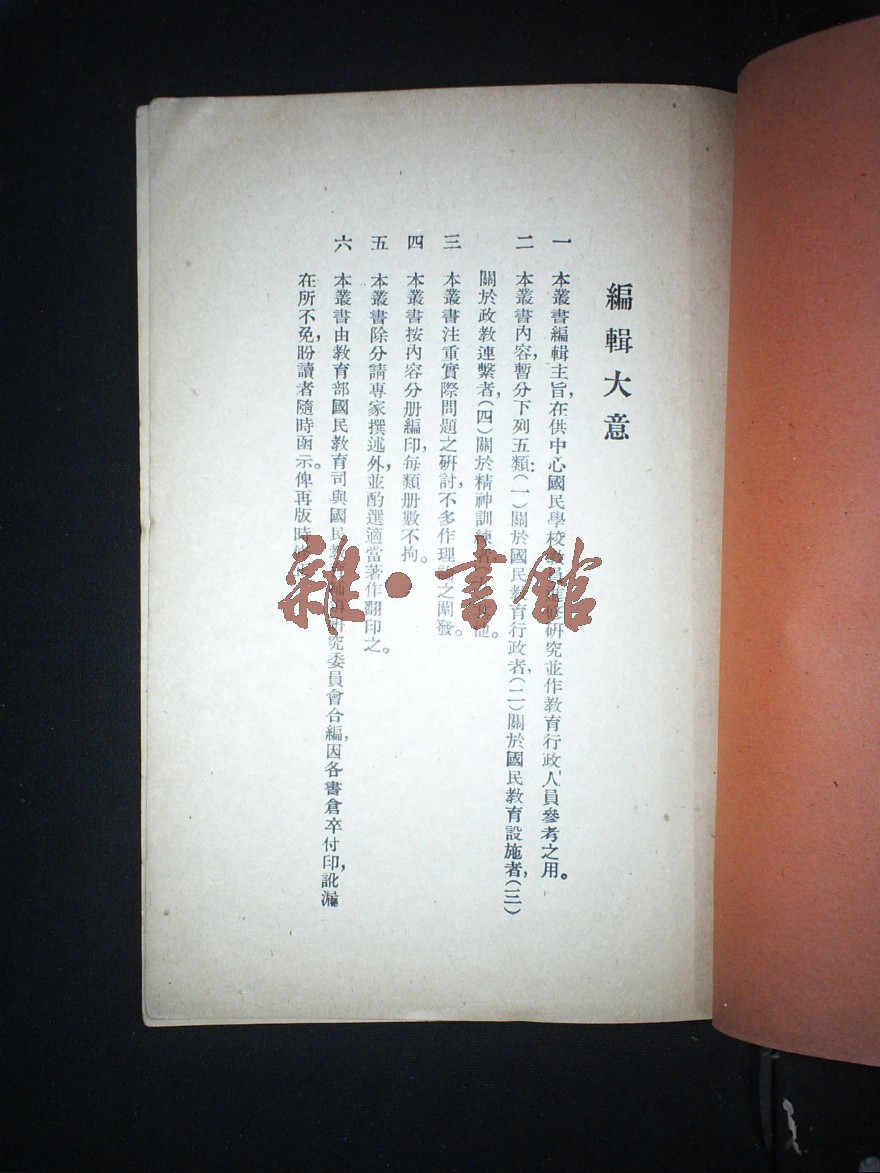 編輯大意
一 本叢書編輯主旨，在供中心國民學校教員進修研究並作教育行政人員參考之用。
二 本叢書內容，暫分下列五類：（一）關於國民教育行政者，（二）關於國民教育設施者，（三）
關於政教連繫者，（四）關於精神訓練者，其他。
三 本叢書注重實際問題之研討，不多作理論之闡發。
四 本叢書按內容分册編印，每類册數不拘。
五 本叢書除分請專家撰述外，並酌選適當著作翻印之。
六 本叢書由教育部國民教育司與國民教育輔導研究委員會合編，因各書倉卒付印，訛漏
在所不免，盼讀者隨時函示。俾再版時
雜·書館